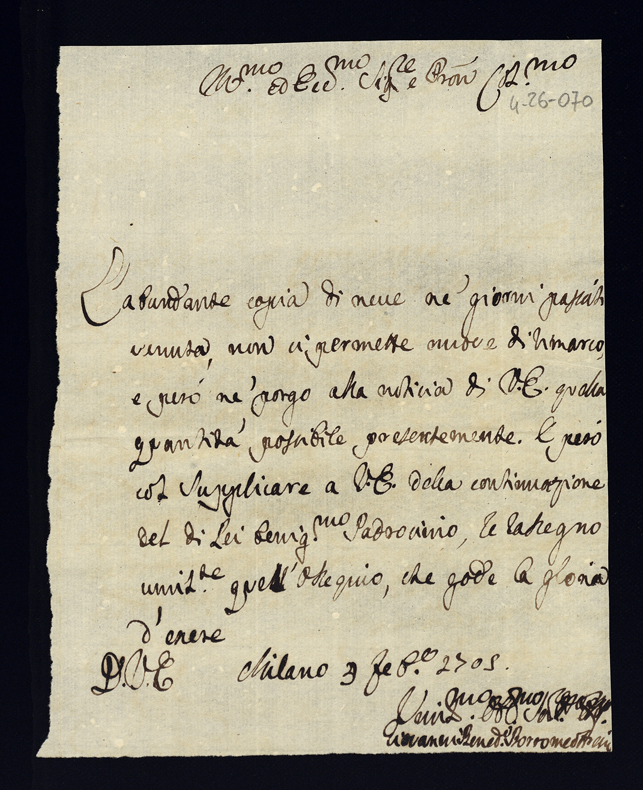 Ill.mo ed Ecc.mo Sig.re e Pron Col.mo
4-26-070
L'abundante copia di neve ne' giorni passati
venuta, non ci permette nuove di rimarco,
e però ne porgo alla noticia di V.E. quella
quantità possibile presentemente. E però
col supplicare a V.E. della continuazione
del di Lei benig.mo Padrocinio, le rasegno
umil.te quell'Osequio, che gode la gloria
d'esere
D.V.E Milano 3 feb.o 1705.
Umil.mo
Giovanni Bened.o Borromeo